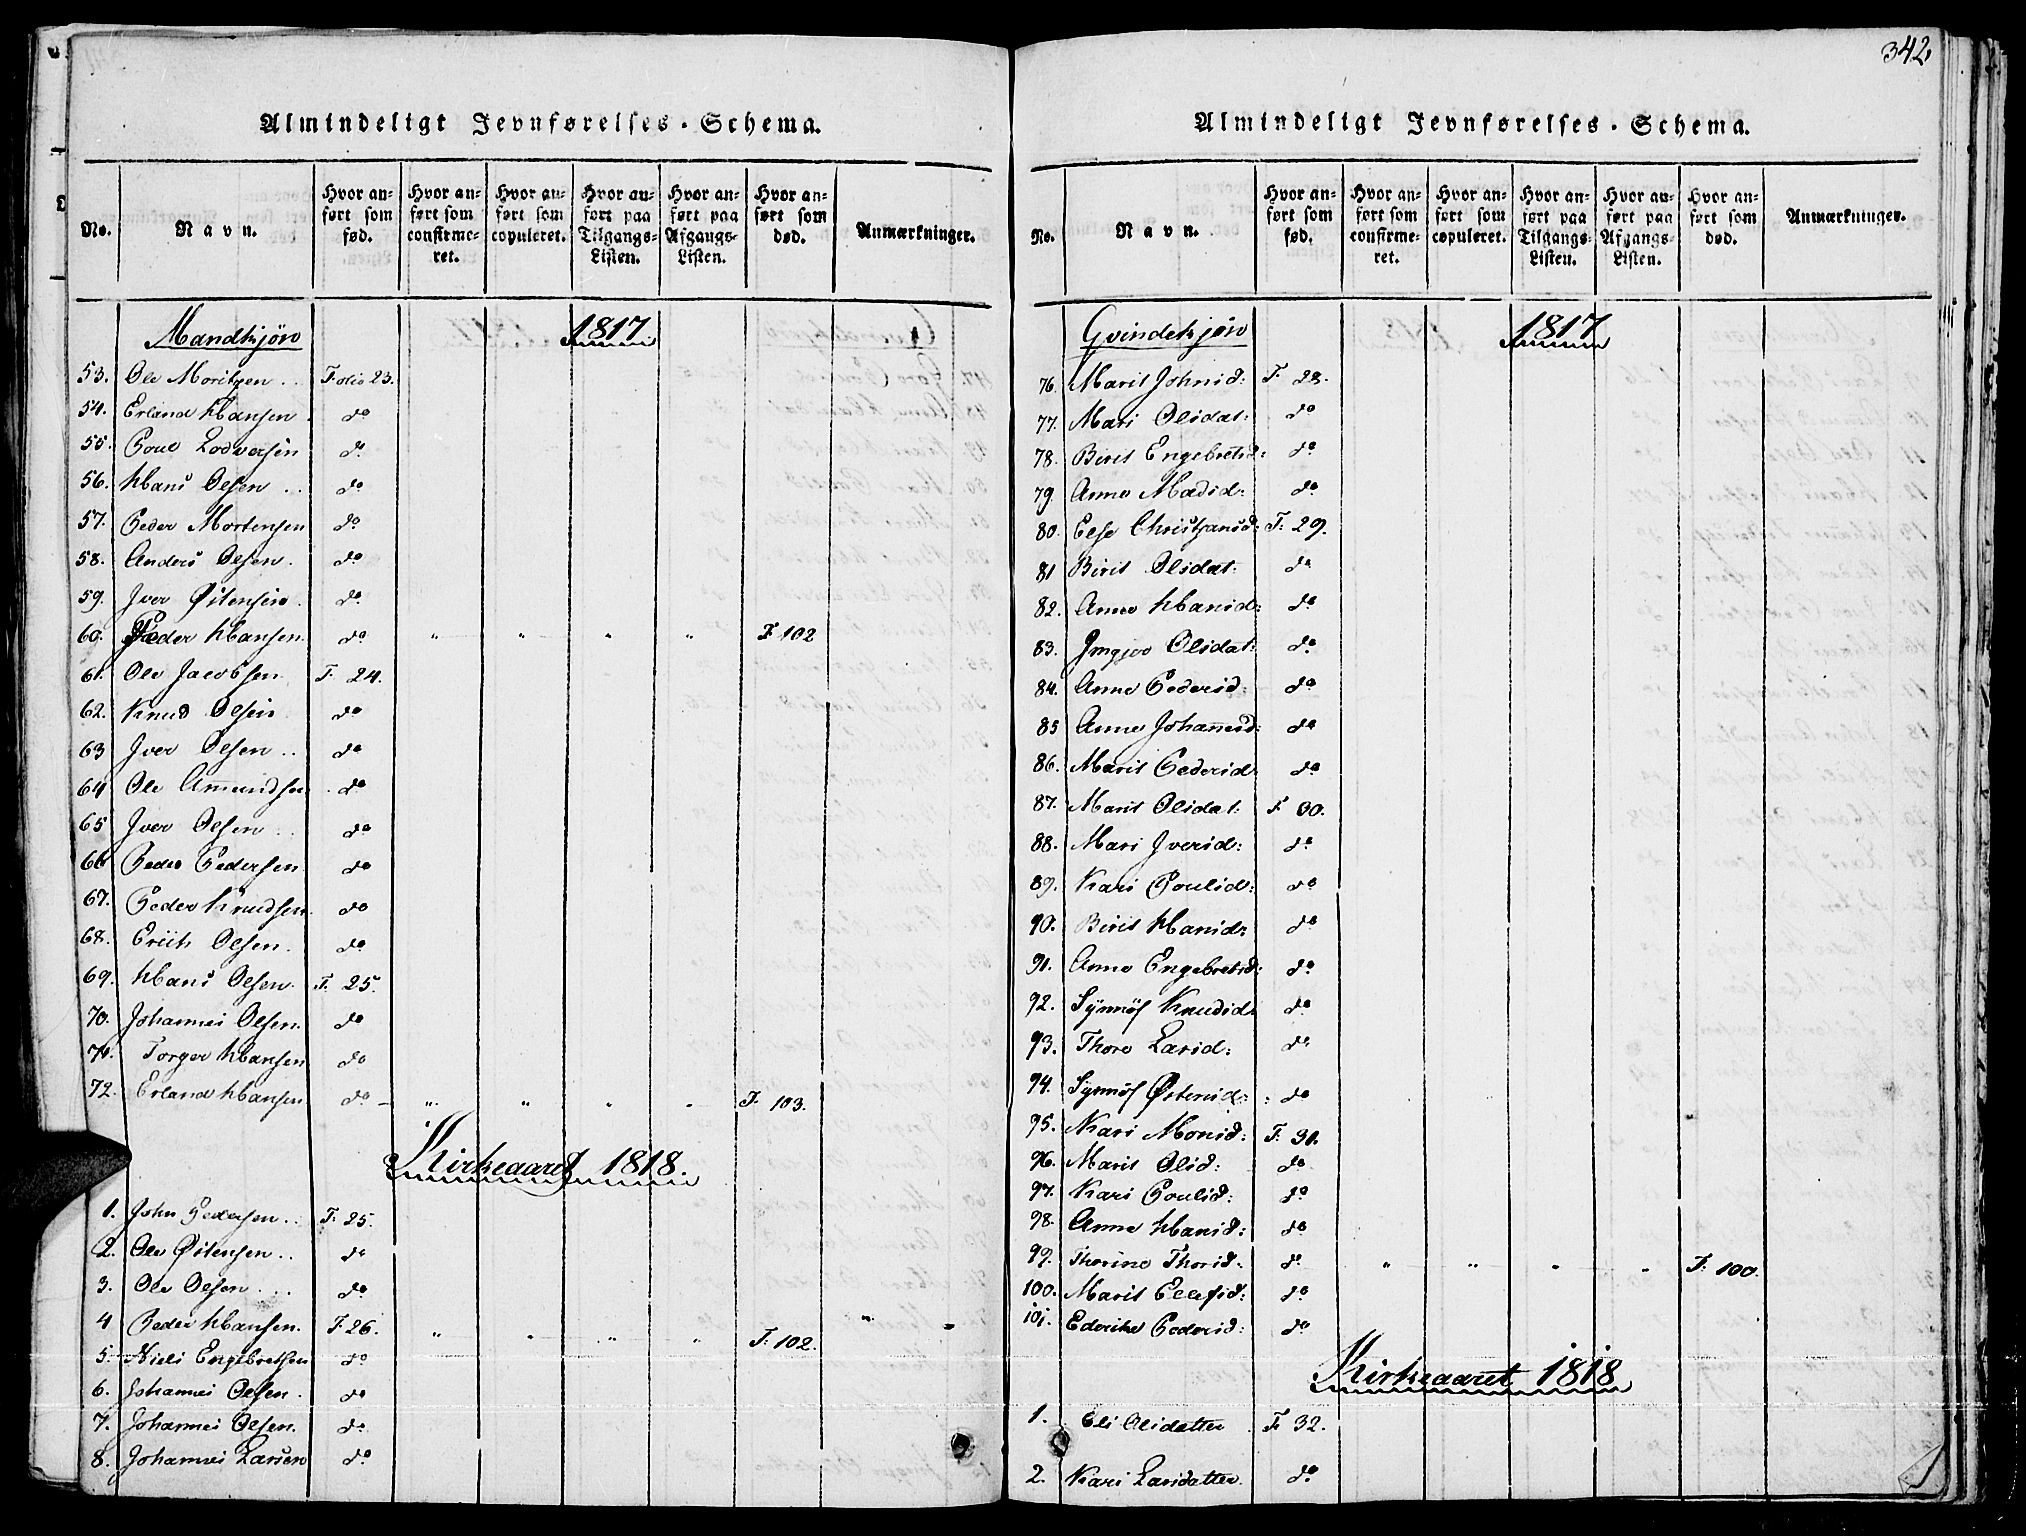 342,
Almindeligt Jevnførelses-Schema.
No. Navn. Hvor anført som fød. Hvor anført som confirmeret. Hvor anført som copuleret. Hvor anført paa Tilgangs-Listen. Hvor anført paa Afgangs-Listen. Hvor anført som død. Anmærkninger.
Mandkjøn 1817.
53. Ole Moritzen .. Folio 23.
54. Erland Hansen . do
55. Poul Lodversen do
56. Hans Olsen .. do
57. Peder Mortensen do
58. Anders Olsen . do
59. Iver Østensen . do
60. Peder Hansen. do " " " " F 102
61. Ole Jacobsen. F. 24.
62. Knud Olsen do
63 Iver Olsen .. do
64 Ole Amundsen . do
65 Iver Olsen .. do
66 Peder Pedersen do
67. Peder Knudsen do
68. Erich Olsen. do
69. Hans Olsen. F. 25.
70. Johannes Olsen. do
71. Torger Hansen do
72. Erland Hansen do – " " " " F. 103.
Kirkeaaret 1818.
1. John Pedersen .. F. 25.
2. Ole Østensen .. do
3. Ole Olsen ... do
4 Peder Hansen. F. 26. " " " " F. 102.
5. Niels Engebretsen do
6. Johannes Olsen . do
7. Johannes Olsen. do
8. Johannes Larsen do
Almindeligt Jevnførelses-Schema.
No. Navn. Hvor anført som fød. Hvor anført som confirmeret. Hvor anført som copuleret. Hvor anført paa Tilgangs-Listen. Hvor anført paa Afgangs-Listen. Hvor anført som død. Anmærkninger.
Qvindekjøn 1817
76. Marit Johnsd: F. 28.
77. Mari Olsdat: do
78. Birit Engebretsd: do
79. Anne Madsd: do
80. Else Christjansd: F. 29.
81 Birit Olsdat: do
82. Anne Hansd: do
83. Ingjer Olsdat: do
84. Anne Pedersd: do
85 Anne Johannesd: do
86. Marit Pedersd: do
87. Marit Olsdat: F 30.
88. Mari Iversd: do
89. Kari Poulsd: do
90. Birit Hansd: do
91. Anne Engebretsd: do
92. Synnøf Knudsd: do
93. Thore Larsd: do
94. Synnøf Østensd: do
95. Kari Monsd: F. 31.
96. Marit Olsd: do
97. Kari Poulsd: do
98. Anne Hansd: do
99. Thorine Thorsd: do " " " " F. 100.
100. Marit Ellefsd: do
101. Ederike Pedersd: do
Kirkeaaret 1818
1. Eli Olsdatter F. 32.
2. Kari Larsdatter. do